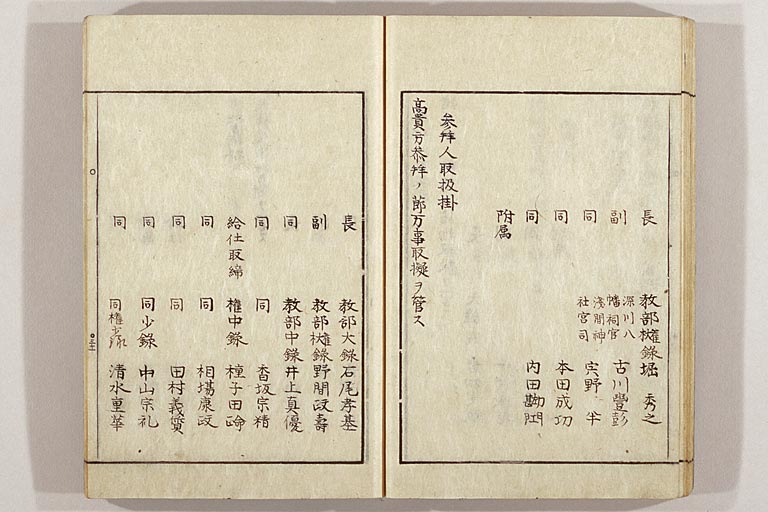 長 教部権大録堀 秀之
副 深川八幡祠官 古川豊彭
同 浅間神社宮司 宍野 半
同 本田成功
同 内田勘
附属
参拝人取扱掛
高貴方恭拝ノ節万事取擬ヲ管ス
長 教部大録石尾孝基
副 教部権大録野間政寿
同 教部中録井上真優
同 同 香坂宗精
給仕取締 権中録 種子田
同 同 相場康政
同 同 田村義質
同 同少録 中山宗礼
同 同権少録 清水重華